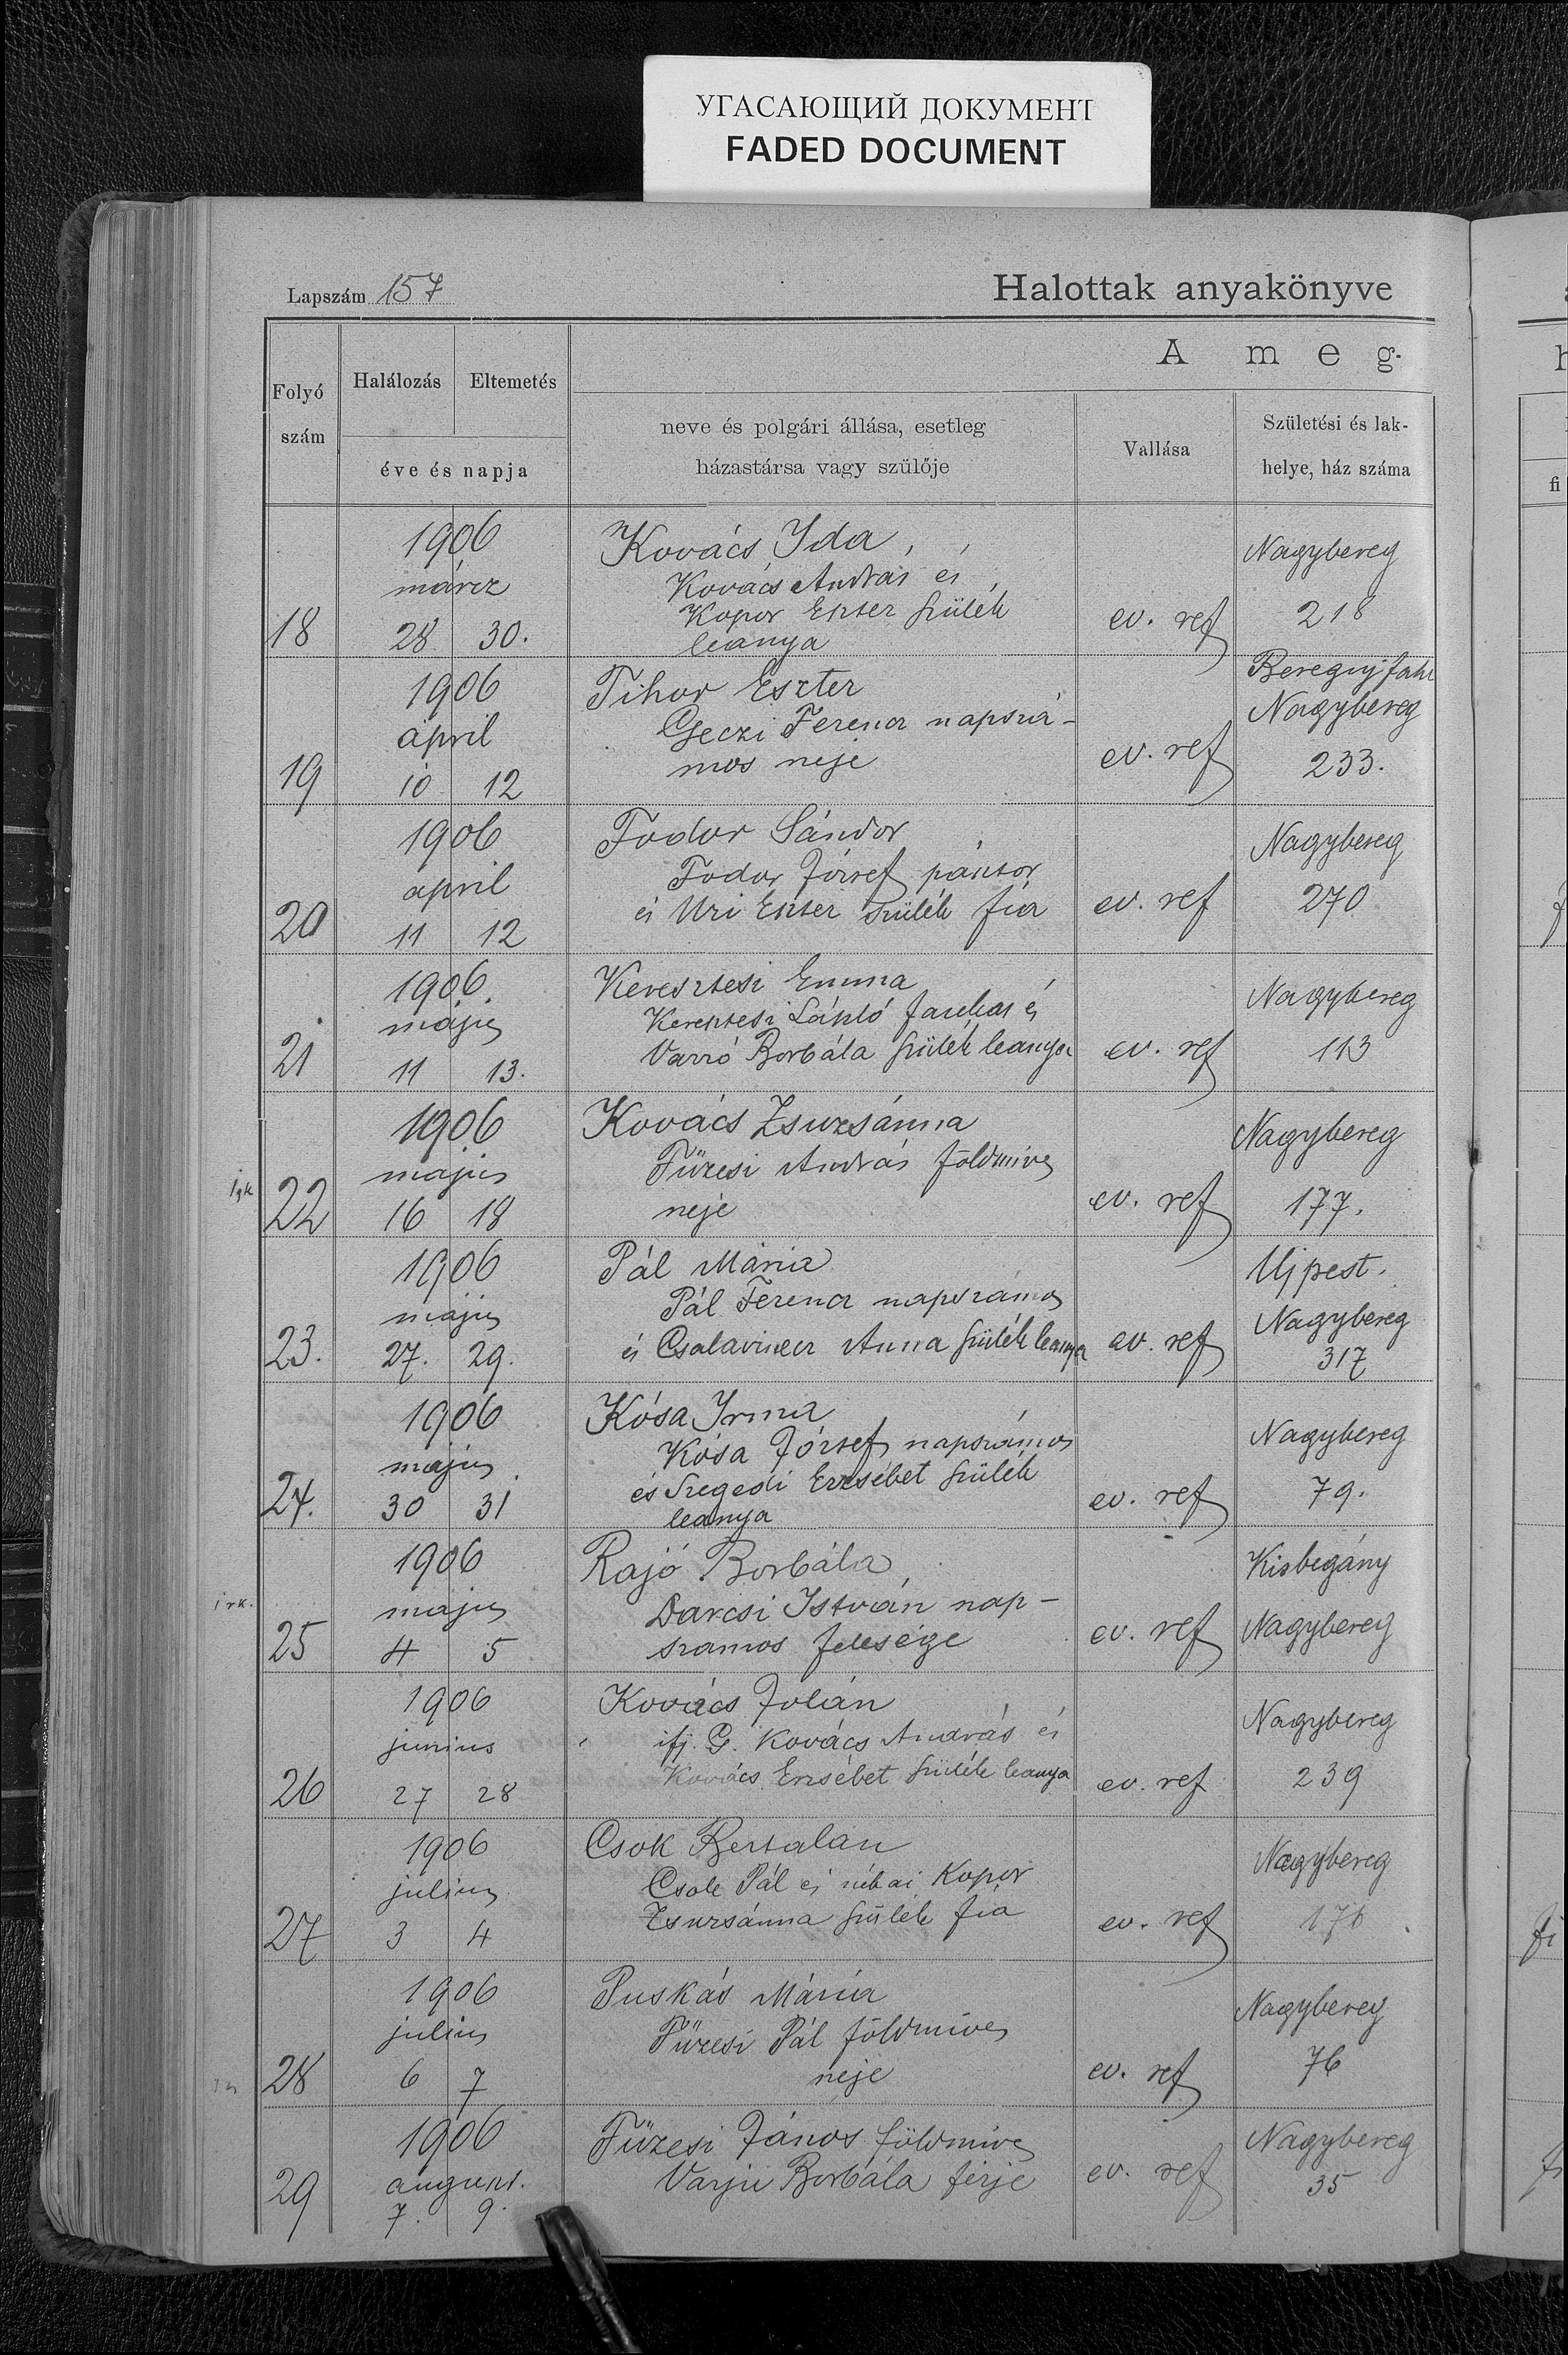 УГАСАЮЩИЙ ДОКУМЕНТ
FADED DOCUMENT
Lapszám 157
Halottak anyakönyve
A meg-
Folyó szám
Halálozás
Eltemetés
éve és napja
neve és polgári állása, esetleg
házastársa vagy szülője
Vallása
Születési és lak-
helye, ház száma
1906
márcz
18
28 30.
Kovács Ida,
Kovács András és
Kopor Eszter szülék
leánya
ev. ref
Nagybereg
218
1906
ápril
19
10 12
Tihor Eszter
Geczi Ferencz napszá-
mos neje
ev. ref
Nagybereg
233.
1906
april
20
11 12
Fodor Sándor
Fodor József pásztor
és Uri Eszter szülék fia
ev. ref
Nagybereg
270
1906.
május
21
11 13.
Keresztesi Emma
Keresztesi László és
Varró Borbála szülék leánya
ev. ref
Nagybereg
113
1906
május
22
16 18
Kovács Zsuzsánna
Füzesi András földmives
neje
ev. ref
Nagybereg
177.
1906
május
23.
27. 29.
Pál Mária
Pál Ferencz napszámos
és Anna szülék leanya
ev. ref
Ujpest.
Nagybereg
317
1906
május
24.
30 31
Kósa Irma
Kósa József napszámos
és Szegedi Erzsébet szülék
leanya
ev. ref
Nagybereg
79.
1906
irk.
majus
25
4 5
Rajó Borbála
Darcsi István nap-
szamos felesége
ev. ref
Kisbegány
Nagybereg
1906
junius
26
27 28
Kovács Jolán
ifj. G. Kovács András és
Kovács Erzsébet szülék leanya
ev. ref
Nagybereg
239
1906
julius
27
3 4
Csok Bertalan
Csok Pál és néhai Kopor
Zsuzsánna szülék fia
ev. ref
Nagybereg
176
1906
julius
28
6 7
Puskás Mária
Füzesi Pál földmives
neje
ev. ref
Nagybereg
76
1906
auguszt.
29
7. 9.
Füzesi János földmives
Varju Borbála férje
ev. ref
Nagybereg
35